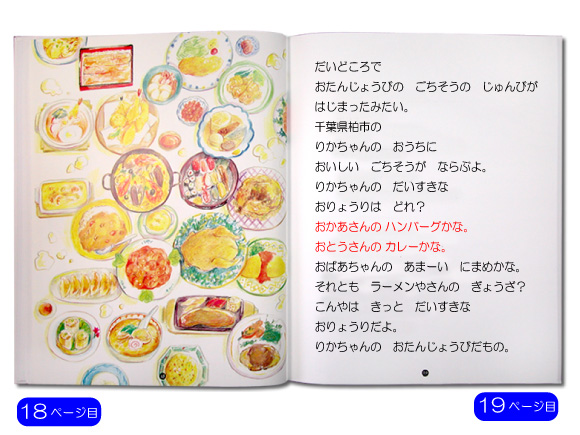 だいどころで
おたんじょうびの　ごちそうの　じゅんびが
はじまったみたい。
千葉県柏市の
りかちゃんの　おうちに
おいしい　ごちそうが　ならぶよ。
りかちゃんの　だいすきな
おりょうりは　どれ？
おかあさんの ハンバーグかな。
おとうさんの カレーかな。
おばあちゃんの　あまーい　にまめかな。
それとも　ラーメンやさんの　ぎょうざ？
こんやは　きっと　だいすきな
おりょうりだよ。
りかちゃんの　おたんじょうびだもの。
18ページ目
19ページ目